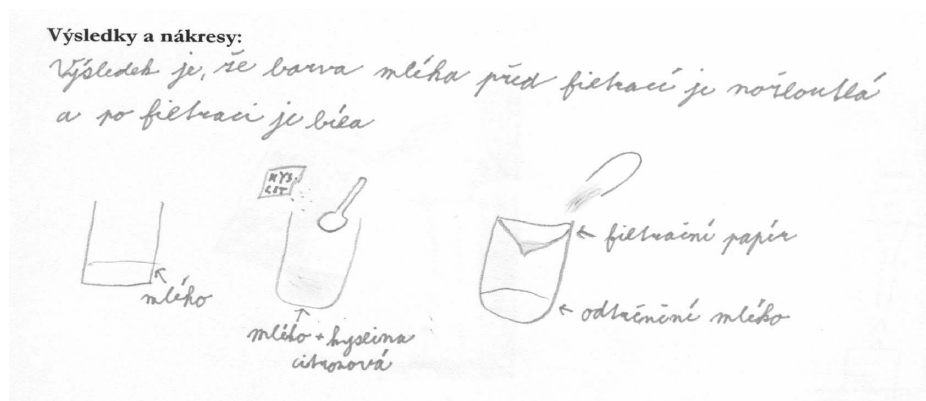 Výsledky a nákresy:
Výsledek je, že barva mléka před filtrací je nažloutlá
a po filtraci je bílá
KYS.
CIT
mléko
mléko + kyselina
citronová
filtrační papír
mléko